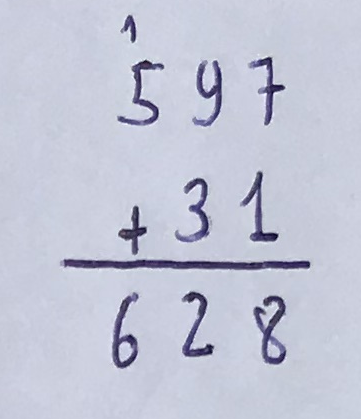 1
597
+ 31
628